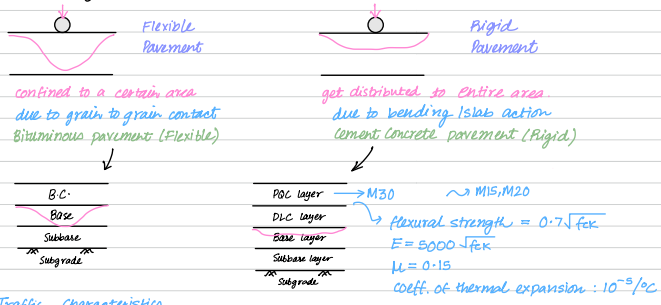 Flexible
Pavement
confined to a certain area
due to grain to grain contact
Bituminous pavement (Flexible)
B.C.
Base
Subbase
Subgrade
Rigid
Pavement
get distributed to entire area.
due to bending / slab action
Cement Concrete pavement (Rigid)
PQC layer → M30 M15, M20
DLC layer
Base layer
Subbase layer
Subgrade
flexural strength = 0.7√fck
E = 5000 √fck
μ = 0.15
coeff. of thermal expansion : 10⁻⁵/°C
Traffic Characteristics